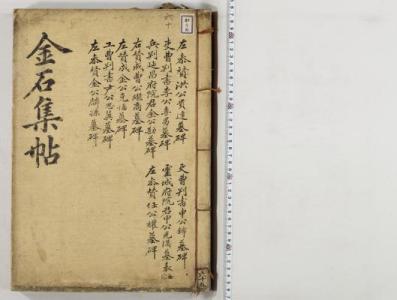 金石集帖
左參贊洪公貴達墓碑
吏曹判書李公長坤墓碑
兵判延昌府院君金公勘墓碑
右贊成曹公繼商墓碑
左贊成金公克愊墓碑
工曹判書尹公思翼墓碑
左參贊金公麟孫墓碑
吏曹判書申公鏛墓碑
靈城府院君申公光漢墓表
左參贊任公權墓碑